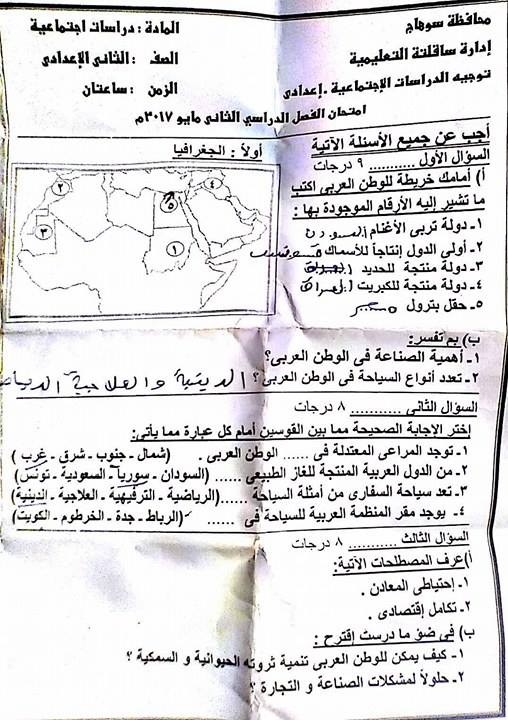 محافظة سوهاج
إدارة ساقلتة التعليمية
توجيه الدراسات الإجتماعية - إعدادى
المادة : دراسات اجتماعية
الصف : الثانى الإعدادى
الزمن : ساعتان
امتحان الفصل الدراسي الثانى مايو ٢٠١٧م
أجب عن جميع الأسئلة الآتية
أولاً : الجغرافيا
السؤال الأول ........... ٩ درجات
أ) أمامك خريطة للوطن العربى اكتب
ما تشير إليه الأرقام الموجودة بها :
١- دولة تربى الأغنام السودان
٢- أولى الدول إنتاجاً للأسماك
٣- دولة منتجة للحديد
٤- دولة منتجة للكبريت العراق
٥- حقل بترول مصر
٢
٤
٥
٣
١
ب) بم تفسر :
١- أهمية الصناعة فى الوطن العربى؟
٢- تعدد أنواع السياحة فى الوطن العربى؟ الدينية والعلاجية
السؤال الثانى ........... ٨ درجات
إختر الإجابة الصحيحة مما بين القوسين أمام كل عبارة مما يأتى:
١- توجد المراعى المعتدلة فى ...... الوطن العربى . (شمال - جنوب - شرق - غرب )
٢- من الدول العربية المنتجة للغاز الطبيعى ...... (السودان - سوريا - السعودية - تونس)
٣- تعد سياحة السفارى من أمثلة السياحة ......(الرياضية - الترفيهية - العلاجية - الدينية)
٤- يوجد مقر المنظمة العربية للسياحة فى ...... (الرباط - جدة - الخرطوم - الكويت)
السؤال الثالث ........... ٨ درجات
أ)عرف المصطلحات الآتية:
١- إحتياطى المعادن .
٢- تكامل إقتصادى .
ب) فى ضوء ما درست إقترح :
١- كيف يمكن للوطن العربى تنمية ثروته الحيوانية و السمكية ؟
٢- حلولاً لمشكلات الصناعة و التجارة ؟